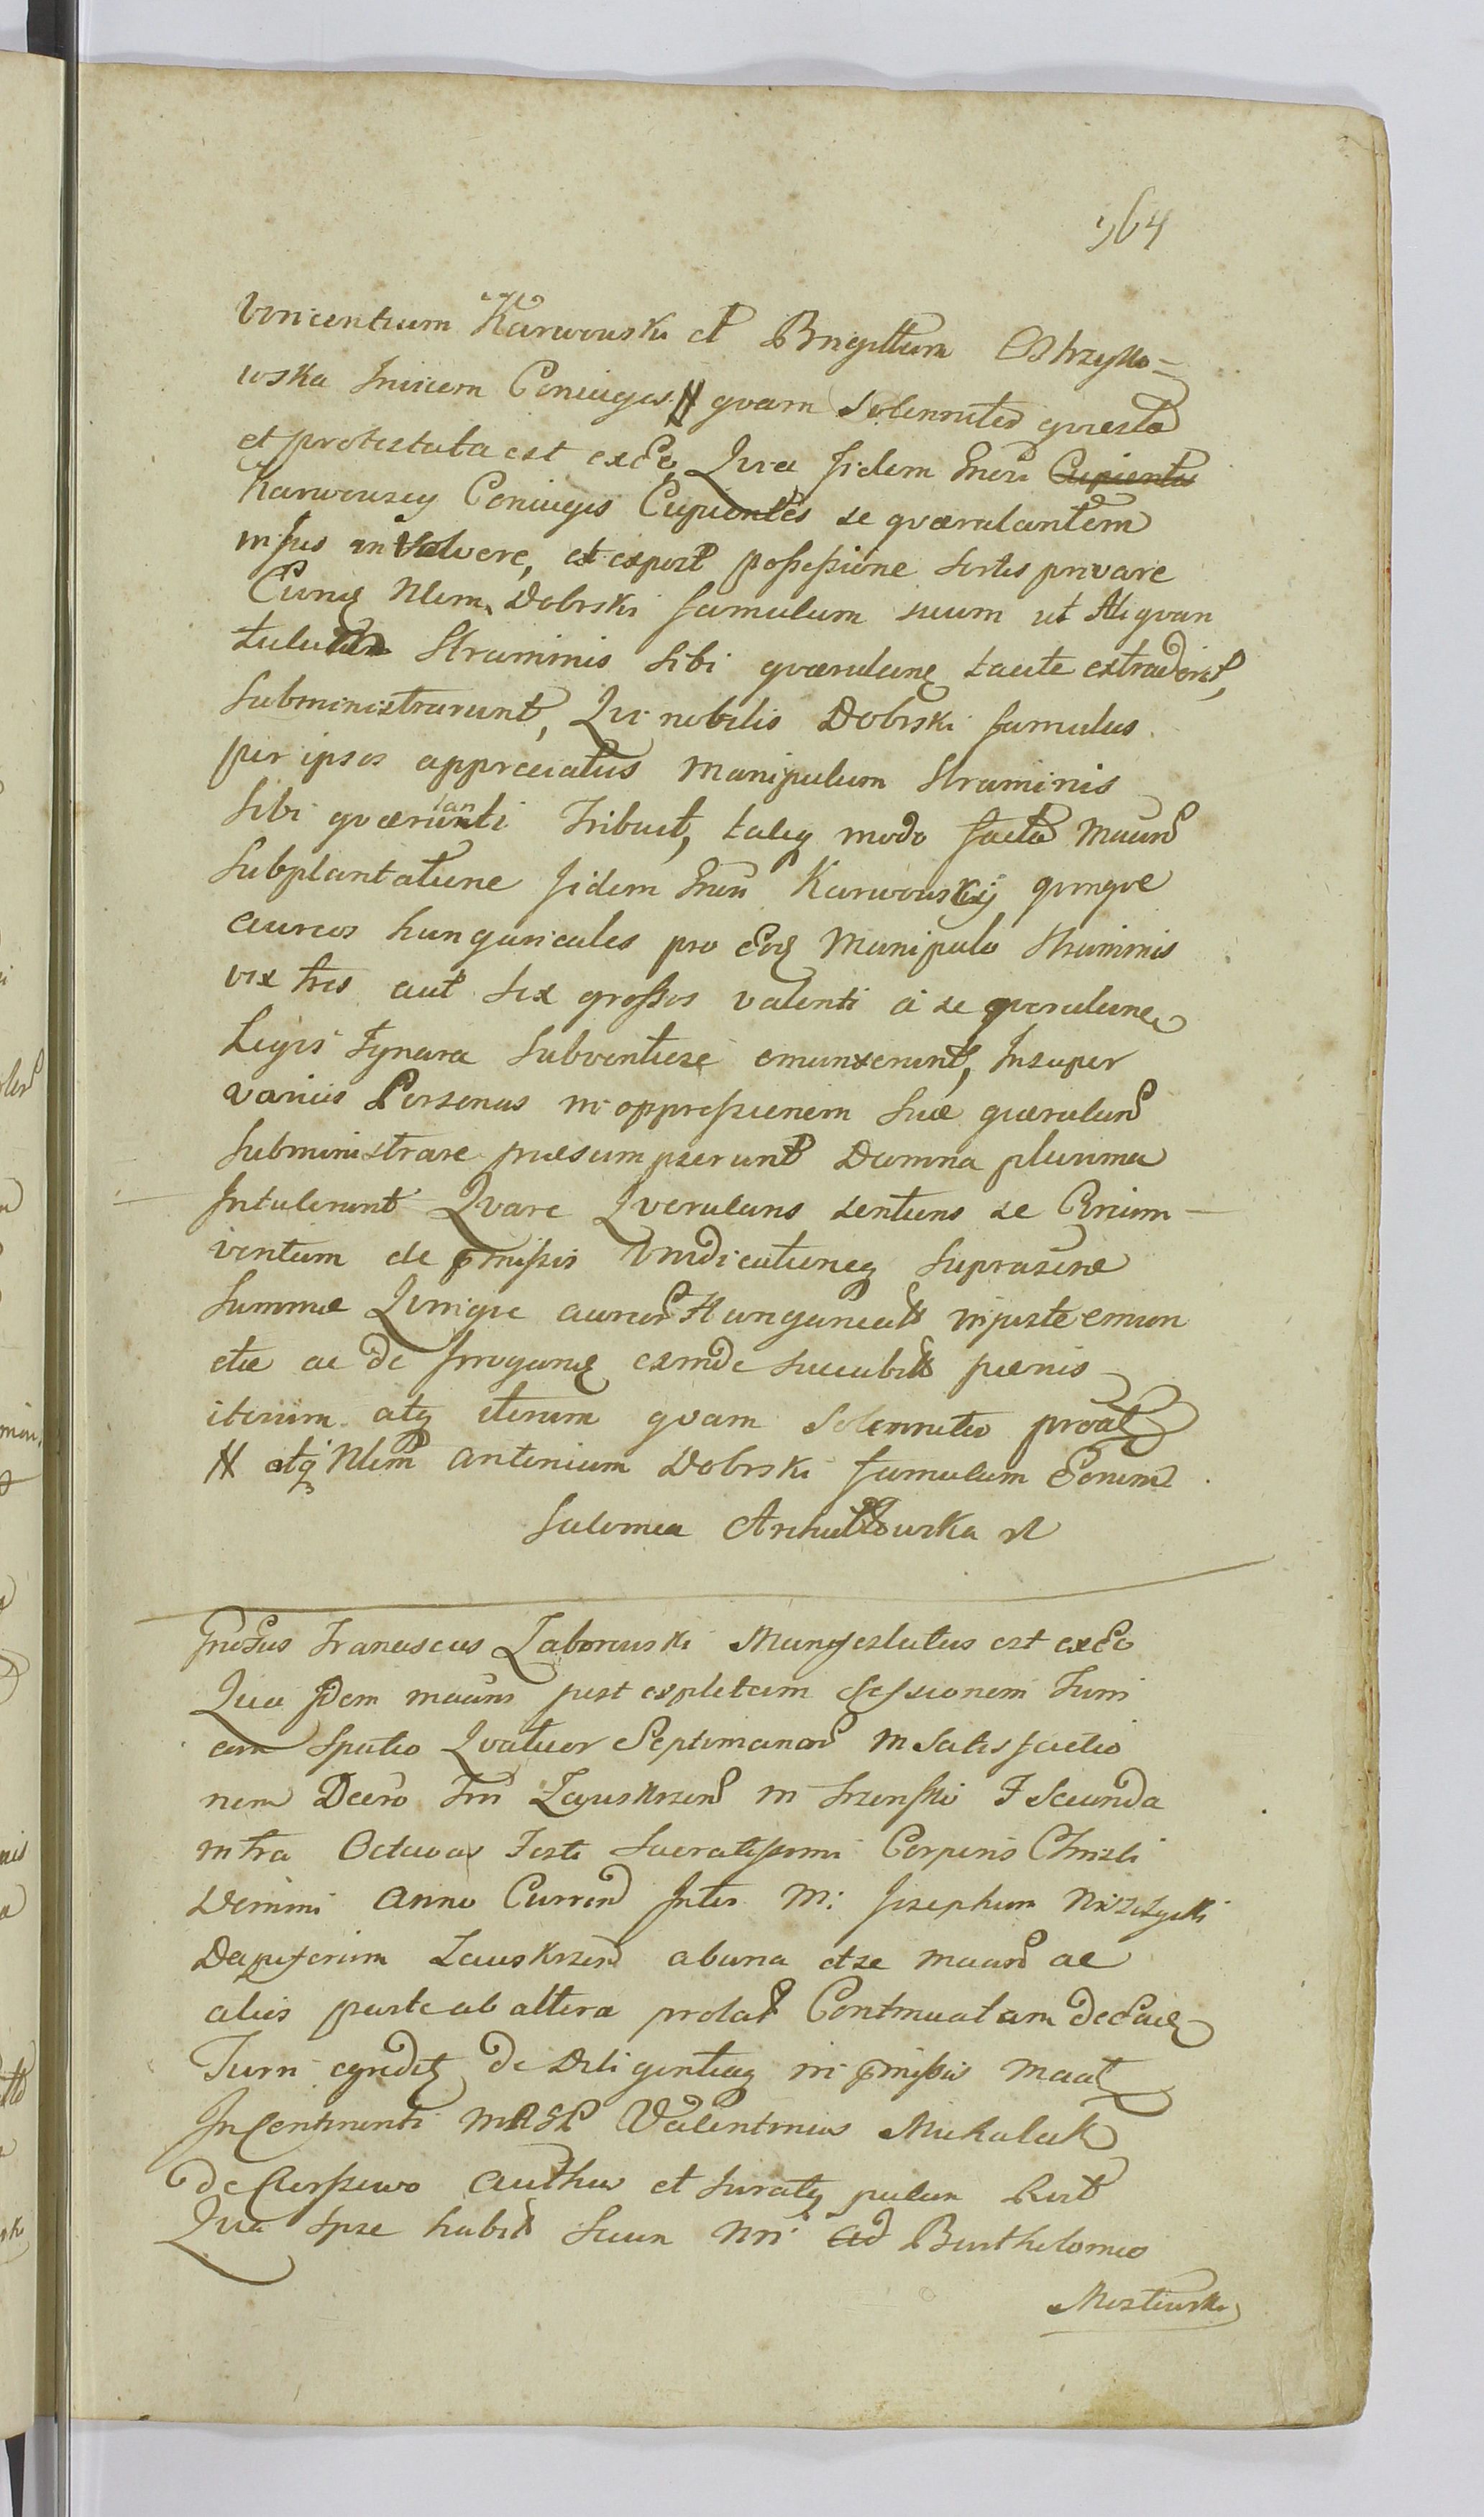 564
Vincentium Karwouski et Brigittam Ostrzyko=
wska Invicem Coniuges # qvam Solenniter qvesta
et protestata est exEo, Qvia Iidem Gnosi Cupientes
Karwouscy Coniuges Cupientes se qværulantem
in jus involvere, et expost possessione sortis privare
Eumq Nlem Dobrski famulum suum ut Aliqvan
tulum Straminis Sibi qværulanq caute extraderet,
Subministrarunt, Qvi nobilis Dobrski famulus
per ipsos appreciatus Manipulum Straminis
Sibi qværulanti Tribuit, taliq modo facta Maand
Subplantatione Iidem Gnosi Karwouscy qvinqve
aureos hungaricales pro Eoq Manipulo Straminis
vix tres aut sex grossos valenti a se qverulane
Legis Ignara Subventiose emunxerunt, Insuper
varias Personas in oppressionem Suæ qværulan
Subministrare præsumpserunt Damna plurima
Intulerunt Qvare Qverulans sentiens se Circum-
ventam de pmissis Vindicationeq Suprascrip
Summæ Qvinqve aureor Hungarical injuste emun
ctæ ac de Irroganq exinde succubit pænis
iterum atq iterum qvam Solenniter proat
# atq Nlem Antonium Dobrski famulum Eorum
Salomea
Franciscus Zaborouski Manifestatus est exEo
Qvia Idem maans post expletam Sessionem Turri
cum Spatio Qvatuor Septimanar in Satisfactio
nem Decro Tri Zawskrzen in Szrensko F Secunda
intra Octavas Festi Sacratissimi Corporis Christi
Domini Anno Curren Inter M: Josephum
Dapiferum Zawskrzen abuna etse maand ac
aliis parte ab altera prolat Continuatam
Turri egredit de Diligentiaq in pmissis maat
In Continenti Valentinus Michalak
de authen et Juratq palam Rect
Qvia Ipse habit Suum Mri ad Bartholomeo